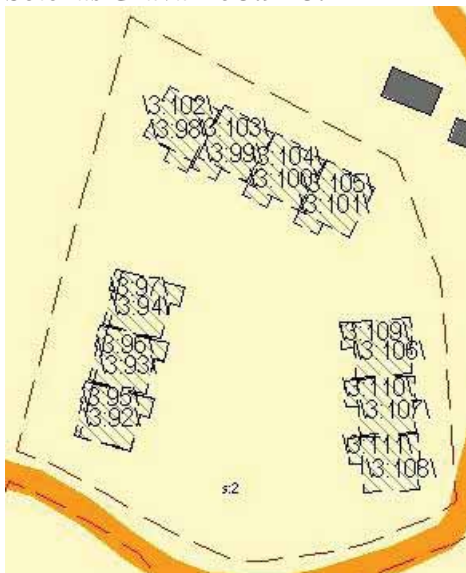 \3:102\
\3:98\
\3:103\
\3:99\
\3:104\
\3:100\
\3:105\
\3:101\
\3:97\
\3:94\
\3:96\
\3:93\
\3:95\
\3:92\
\3:109\
\3:106\
\3:110\
\3:107\
\3:111\
\3:108\
s:2